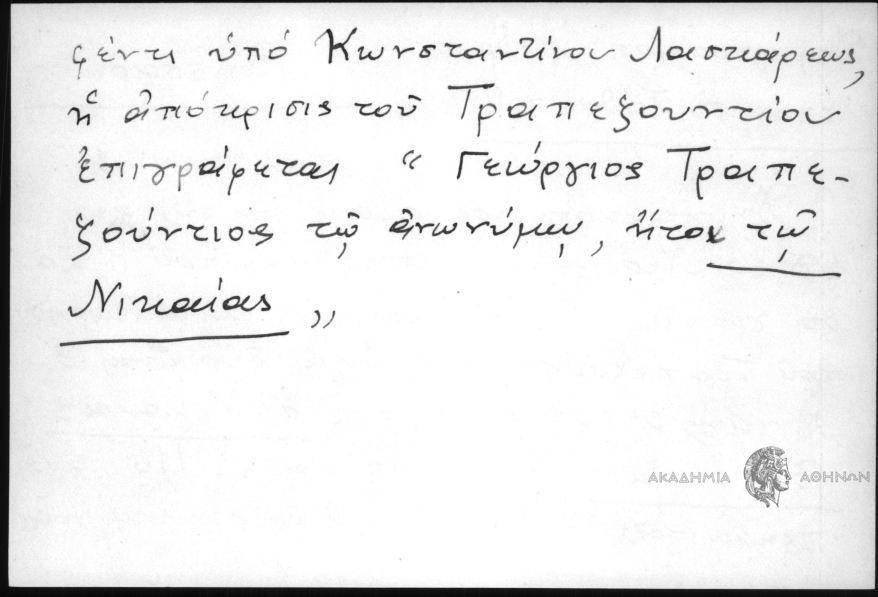 φέντι ὑπό Κωνσταντίνου Λασκάρεως,
ἡ ἀπόκρισις τοῦ Τραπεζουντίου
ἐπιγράφεται “ Γεώργιος Τραπε-
ζούντιος τῷ ἀνωνύμῳ, ἤτοι τῷ
Νικαίας „
ΑΚΑΔΗΜΙΑ ΑΘΗΝΩΝ